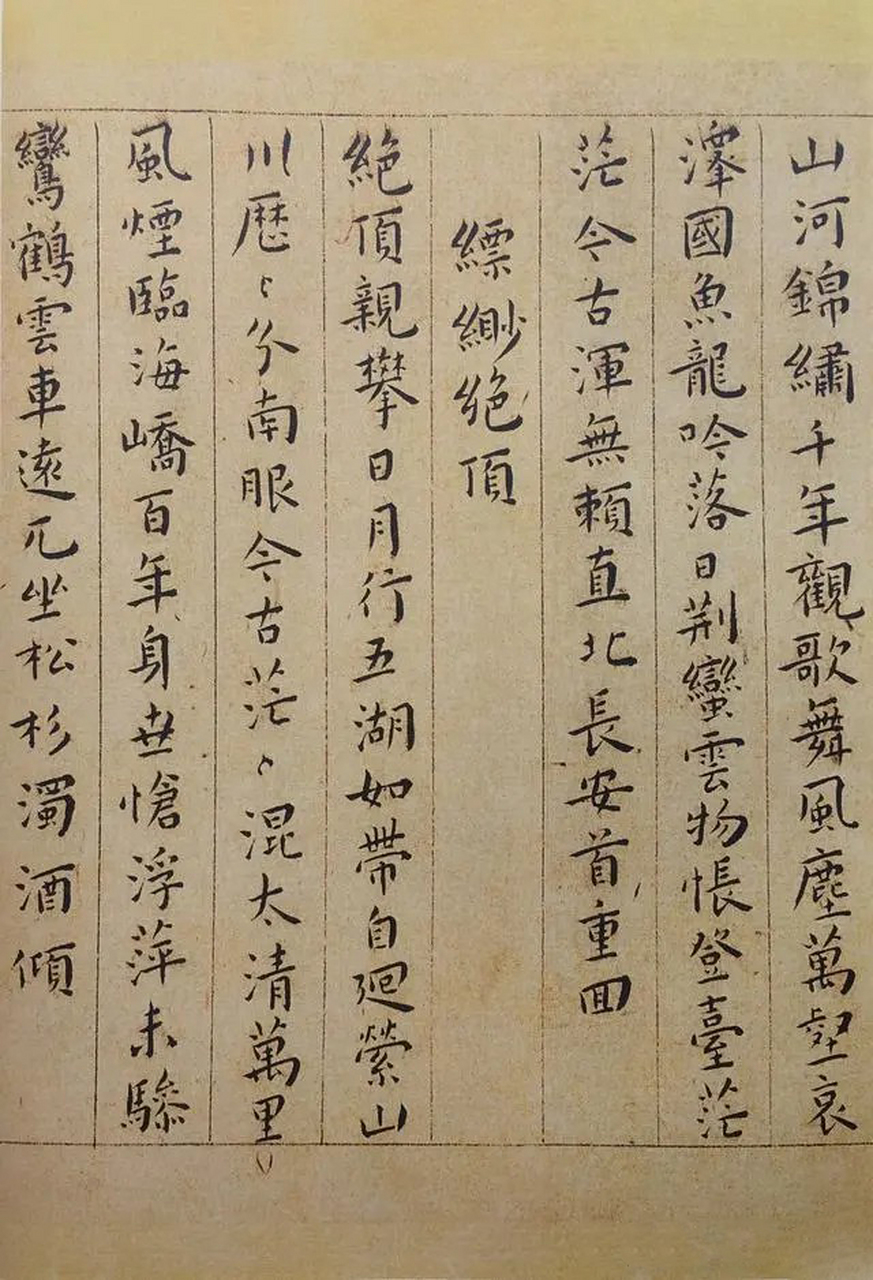 山河錦繡千年觀歌舞風塵萬壑哀
澤國魚龍吟落日荆蠻雲物悵登臺茫
茫今古渾無賴直北長安首重回
縹緲絕頂
絕頂親攀日月行五湖如帶自迴縈山
川歷〻分南眼今古茫〻混太清萬里
風煙臨海嶠百年身世愴浮萍未驂
鸞鶴雲車遠兀坐松杉濁酒傾